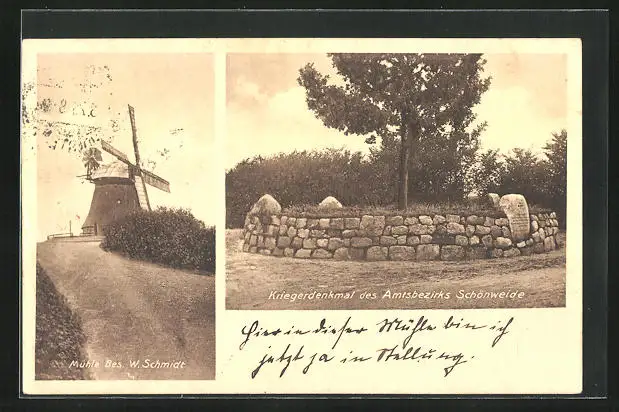 Kriegerdenkmal des Amtsbezirks Schönweide
Mühle Bes. W. Schmidt
Hier in dieser Mühle bin ich
jetzt ja in Stellung.